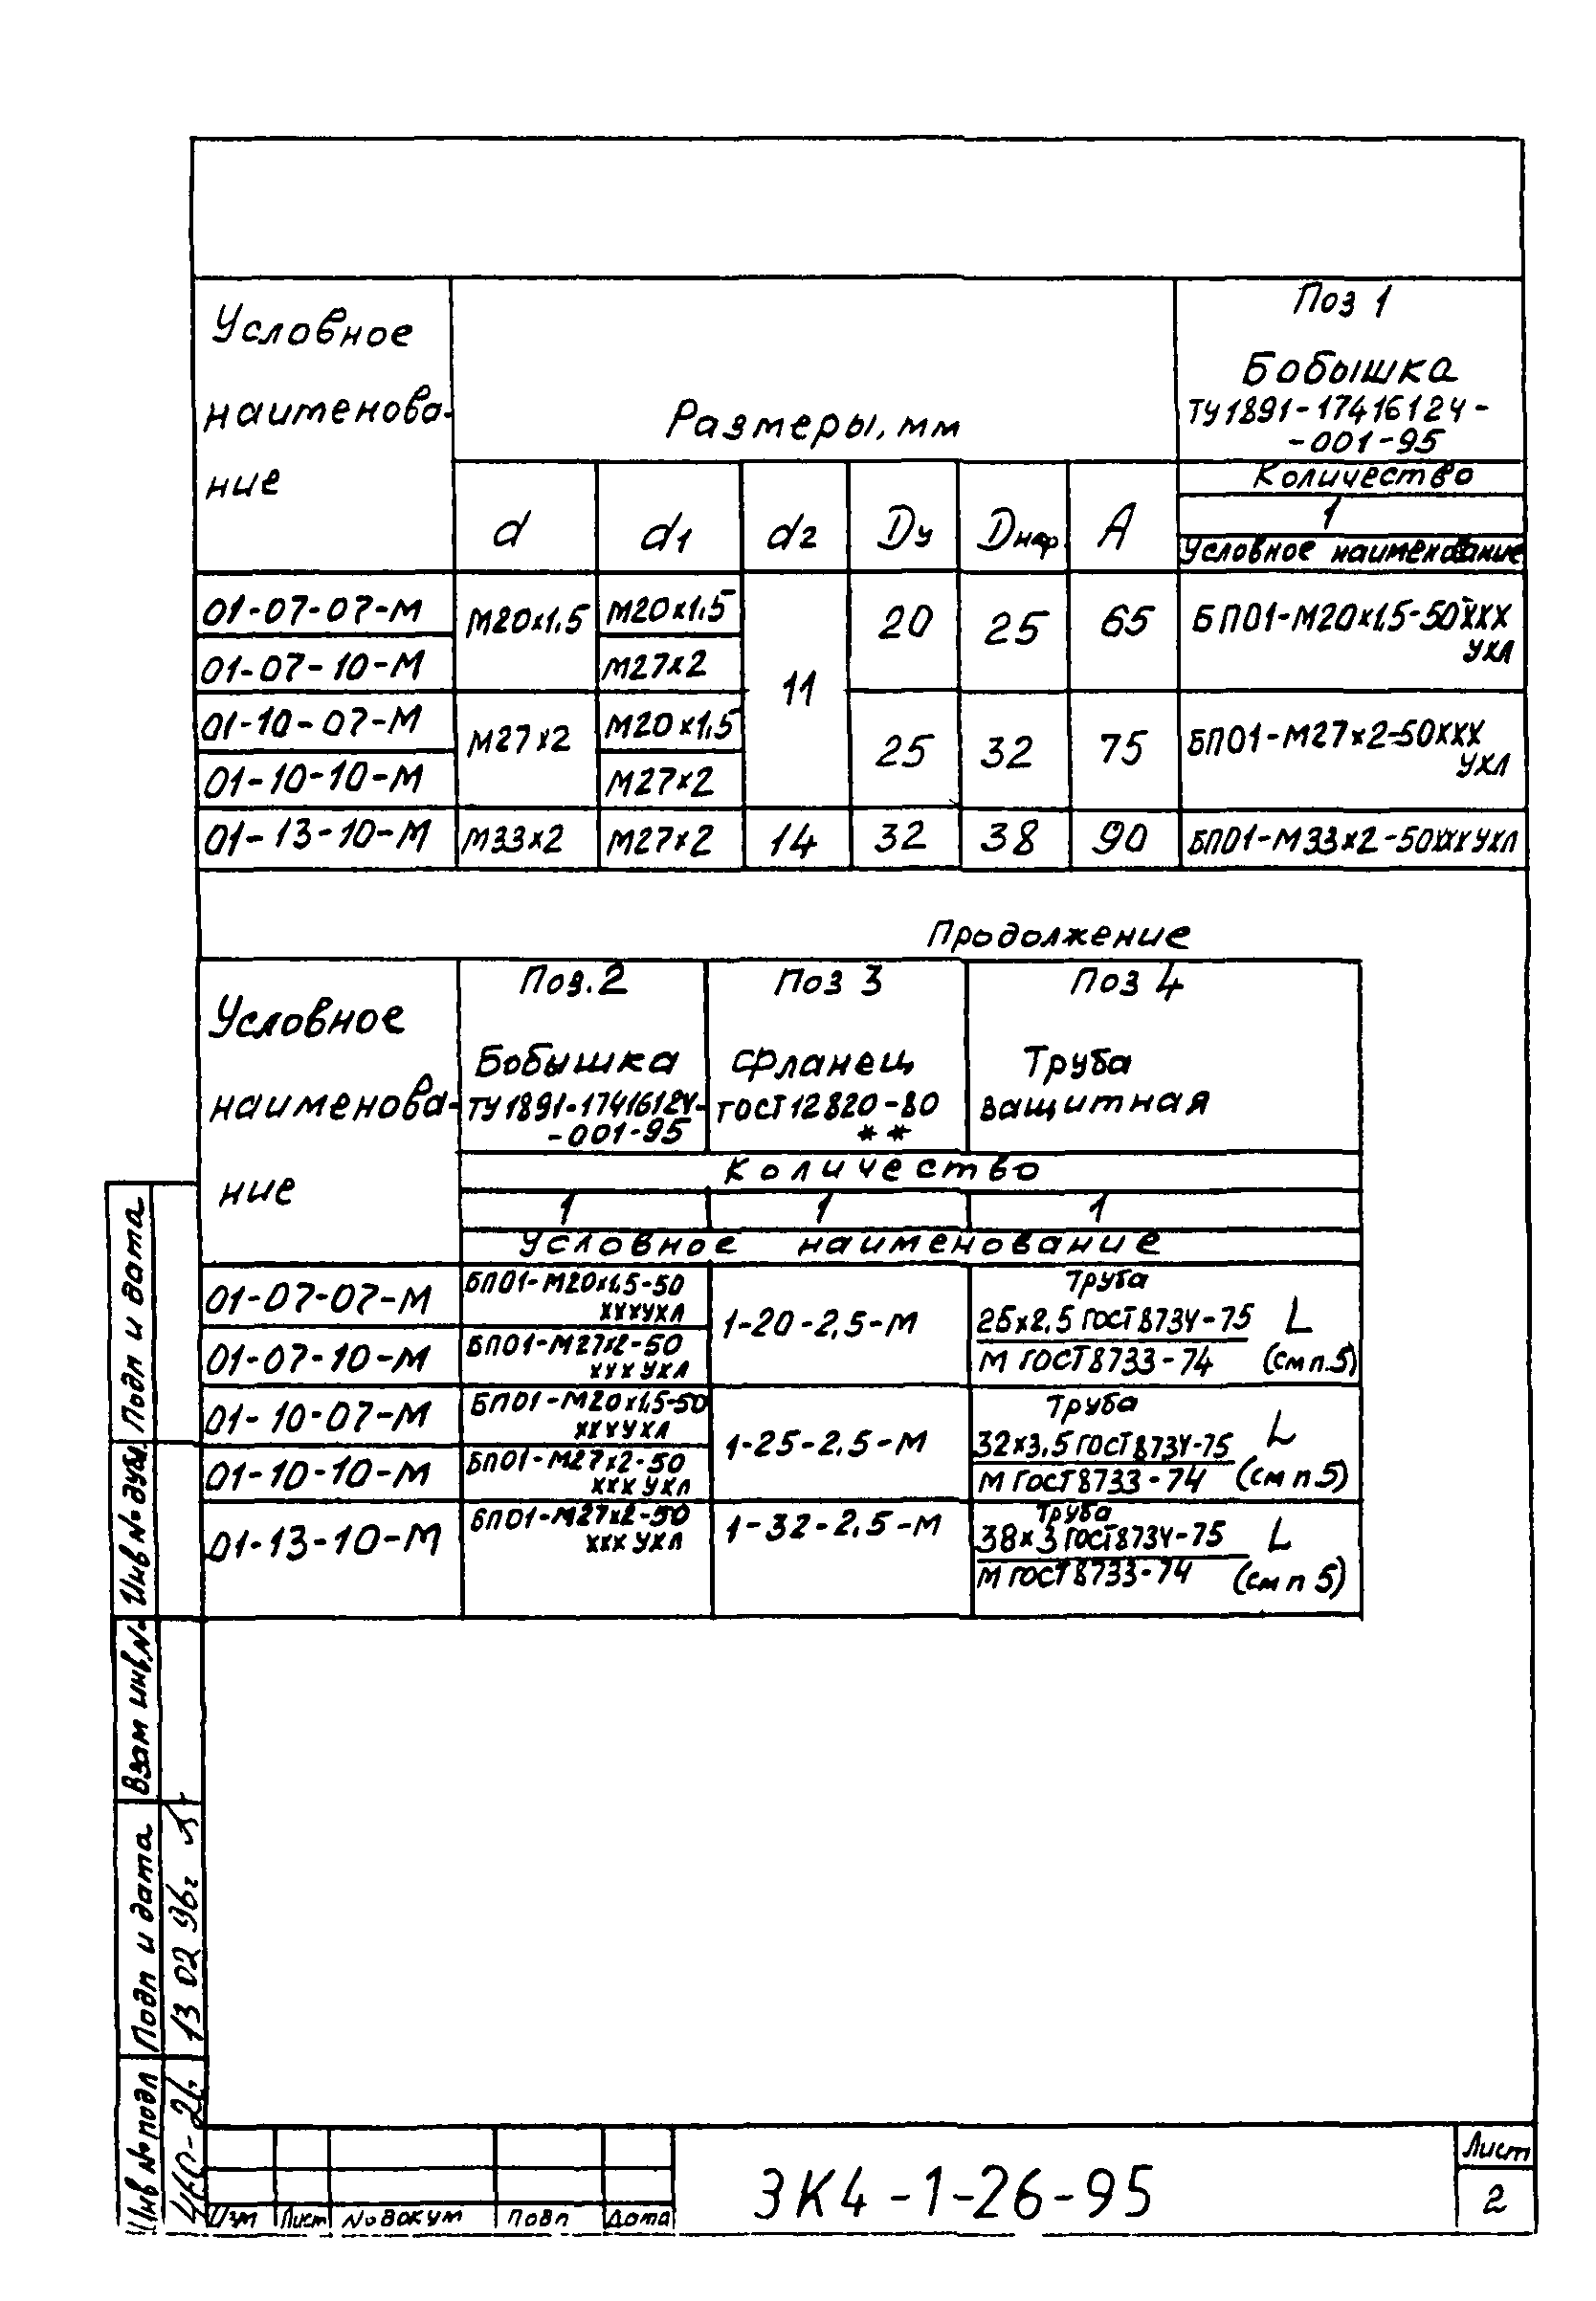 Условное
наименова-
ние
Размеры, мм
Поз 1
Бобышка
ТУ1891-17416124-
-001-95
Количество
1
Условное наименование
d d1 d2 Dу Dнар. A
01-07-07-М М20х1,5 М20х1,5 11 20 25 65 БП01-М20х1,5-50ХХХ
УХЛ
01-07-10-М М27х2
01-10-07-М М27х2 М20х1,5 25 32 75 БП01-М27х2-50ХХХ
УХЛ
01-10-10-М М27х2
01-13-10-М М33х2 М27х2 14 32 38 90 БП01-М33х2-50ХХХУХЛ
Продолжение
Условное
наименова-
ние
Поз.2
Бобышка
ТУ1891-17416124-
-001-95
Поз 3
Фланец
ГОСТ12820-80
**
Поз 4
Труба
защитная
Количество
1 1 1
Условное наименование
01-07-07-М БП01-М20х1,5-50
ХХХУХЛ
1-20-2,5-М
Труба
25х2,5 ГОСТ8734-75 L
М ГОСТ8733-74 (см п.5)
01-07-10-М БП01-М27х2-50
ХХХ УХЛ
01-10-07-М БП01-М20х1,5-50
ХХХУХЛ
1-25-2,5-М
Труба
32х3,5 ГОСТ8734-75 L
М ГОСТ8733-74 (см п 5)
01-10-10-М БП01-М27х2-50
ХХХ УХЛ
01-13-10-М БП01-М27х2-50
ХХХ УХЛ
1-32-2,5-М
Труба
38х3 ГОСТ8734-75 L
М ГОСТ8733-74 (см п 5)
Подп и дата
Инв № дубл.
Взам инв.№
Подп и дата
13 02 96г
Инв № подл
Изм Лист № докум Подп Дата
ЗК4-1-26-95
Лист
2